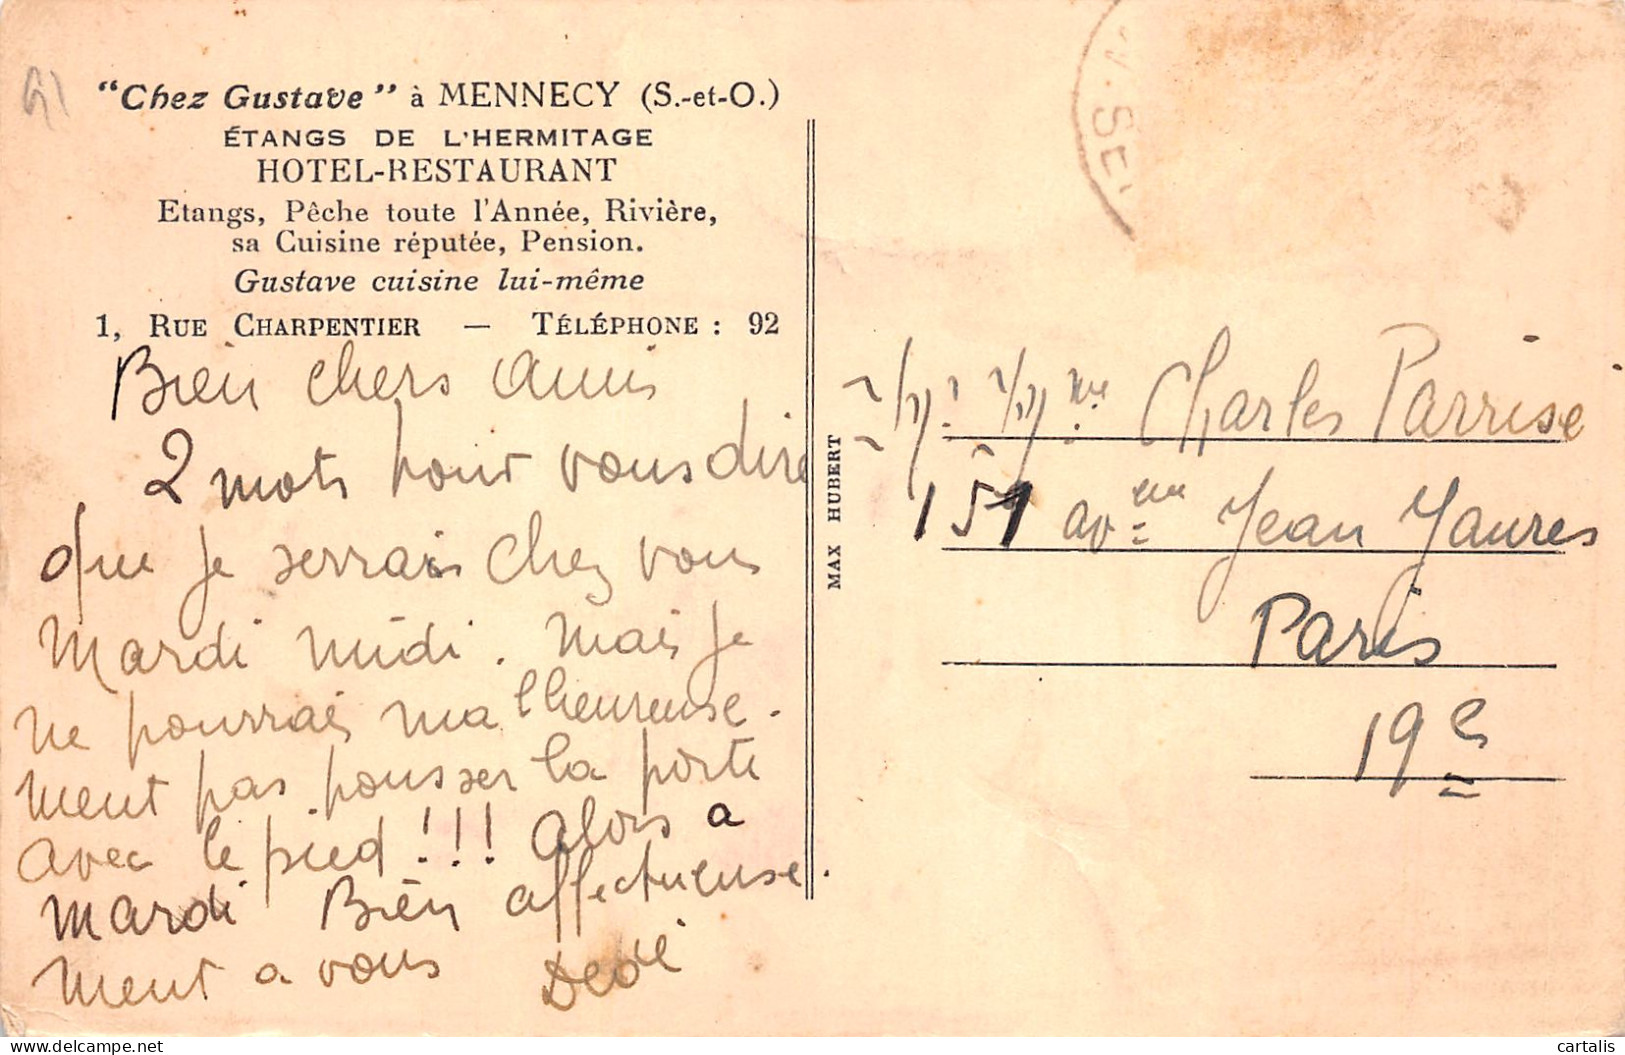 "Chez Gustave" à MENNECY (S.-et-O.)
ÉTANGS DE L'HERMITAGE
HOTEL-RESTAURANT
Etangs, Pêche toute l'Année, Rivière,
sa Cuisine réputée, Pension.
Gustave cuisine lui-même
1, RUE CHARPENTIER — TÉLÉPHONE : 92
Bien chers Amis
2 mots pour vous dire
que je serrais chez vous
Mardi midi. Mais je
ne pourrais malheureuse-
ment pas pousser la porte
avec le pied !!! Alors a
mardi Bien affectueuse-
ment a vous Dédé
MAX HUBERT
Charles Parrise
151 av enue Jean Jaures
Paris
19e
SE
91
cartalis
delcampe.net